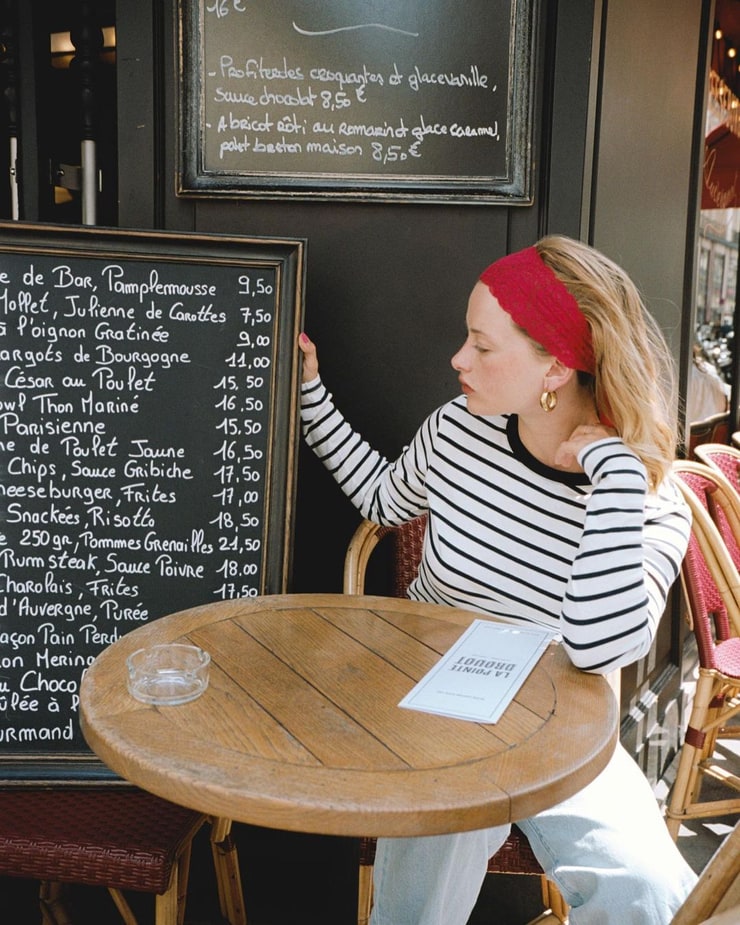 16€
- Profiteroles croquantes et glace vanille,
Sauce chocolat 8,50 €
- Abricot rôti au Romarin et glace caramel,
palet breton maison 8,50€
e de Bar, Pamplemousse 9,50
Mollet, Julienne de Carottes 7,50
à l'oignon Gratinée 9,00
argots de Bourgogne 11,00
César au Poulet 15,50
owl Thon Mariné 16,50
Parisienne 15,50
me de Poulet Jaune 16,50
Chips, Sauce Gribiche 17,50
heeseburger, Frites 17,00
Snackées, Risotto 18,50
e 250gr, Pommes Grenailles 21,50
Rumsteak, Sauce Poivre 18,00
Charolais, Frites 17,50
d'Auvergne, Purée
açon Pain Perd
on Mering
u Choco
ûlée à
urmand
LA POINTE
DROUOT